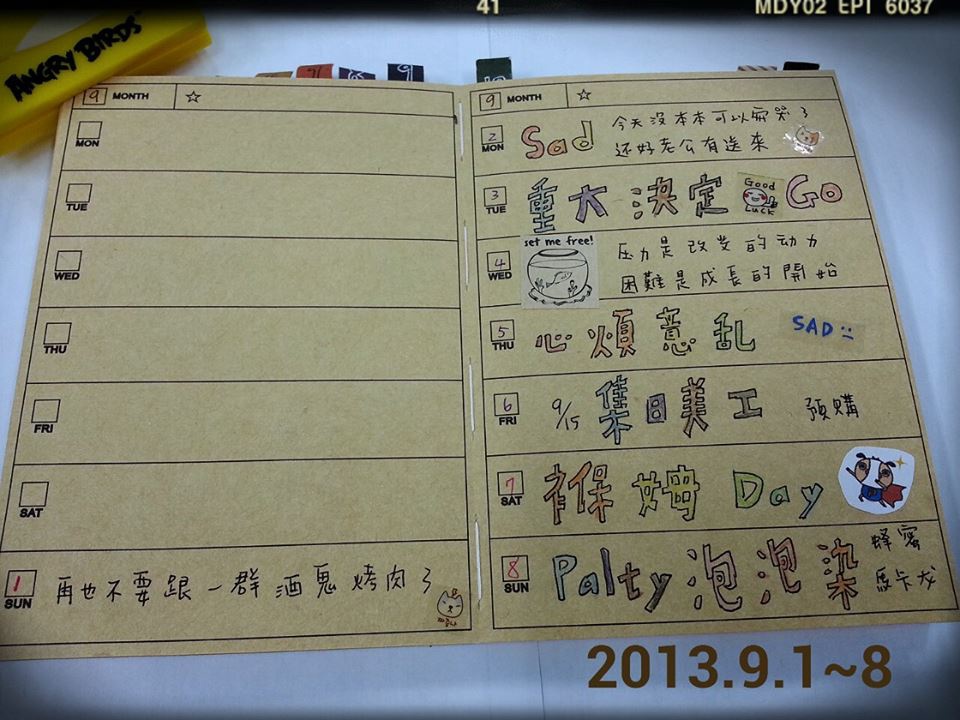 41
MDY02 EPI 6037
ANGRY BIRDS
9 MONTH ☆
MON
TUE
WED
THU
FRI
SAT
1 SUN 再也不要跟一群酒鬼烤肉了
9 MONTH ☆
2 MON Sad 今天沒本本可以哭了
还好老公有送來
3 TUE 重大決定 Good Luck Go
4 WED set me free! 压力是改变的动力
困難是成長的開始
5 THU 心煩意乱 SAD
6 FRI 9/15 集日美工 預購
7 SAT 褓姆 Day
8 SUN Palty 泡泡染 蜂蜜
馬卡龙
2013.9.1~8